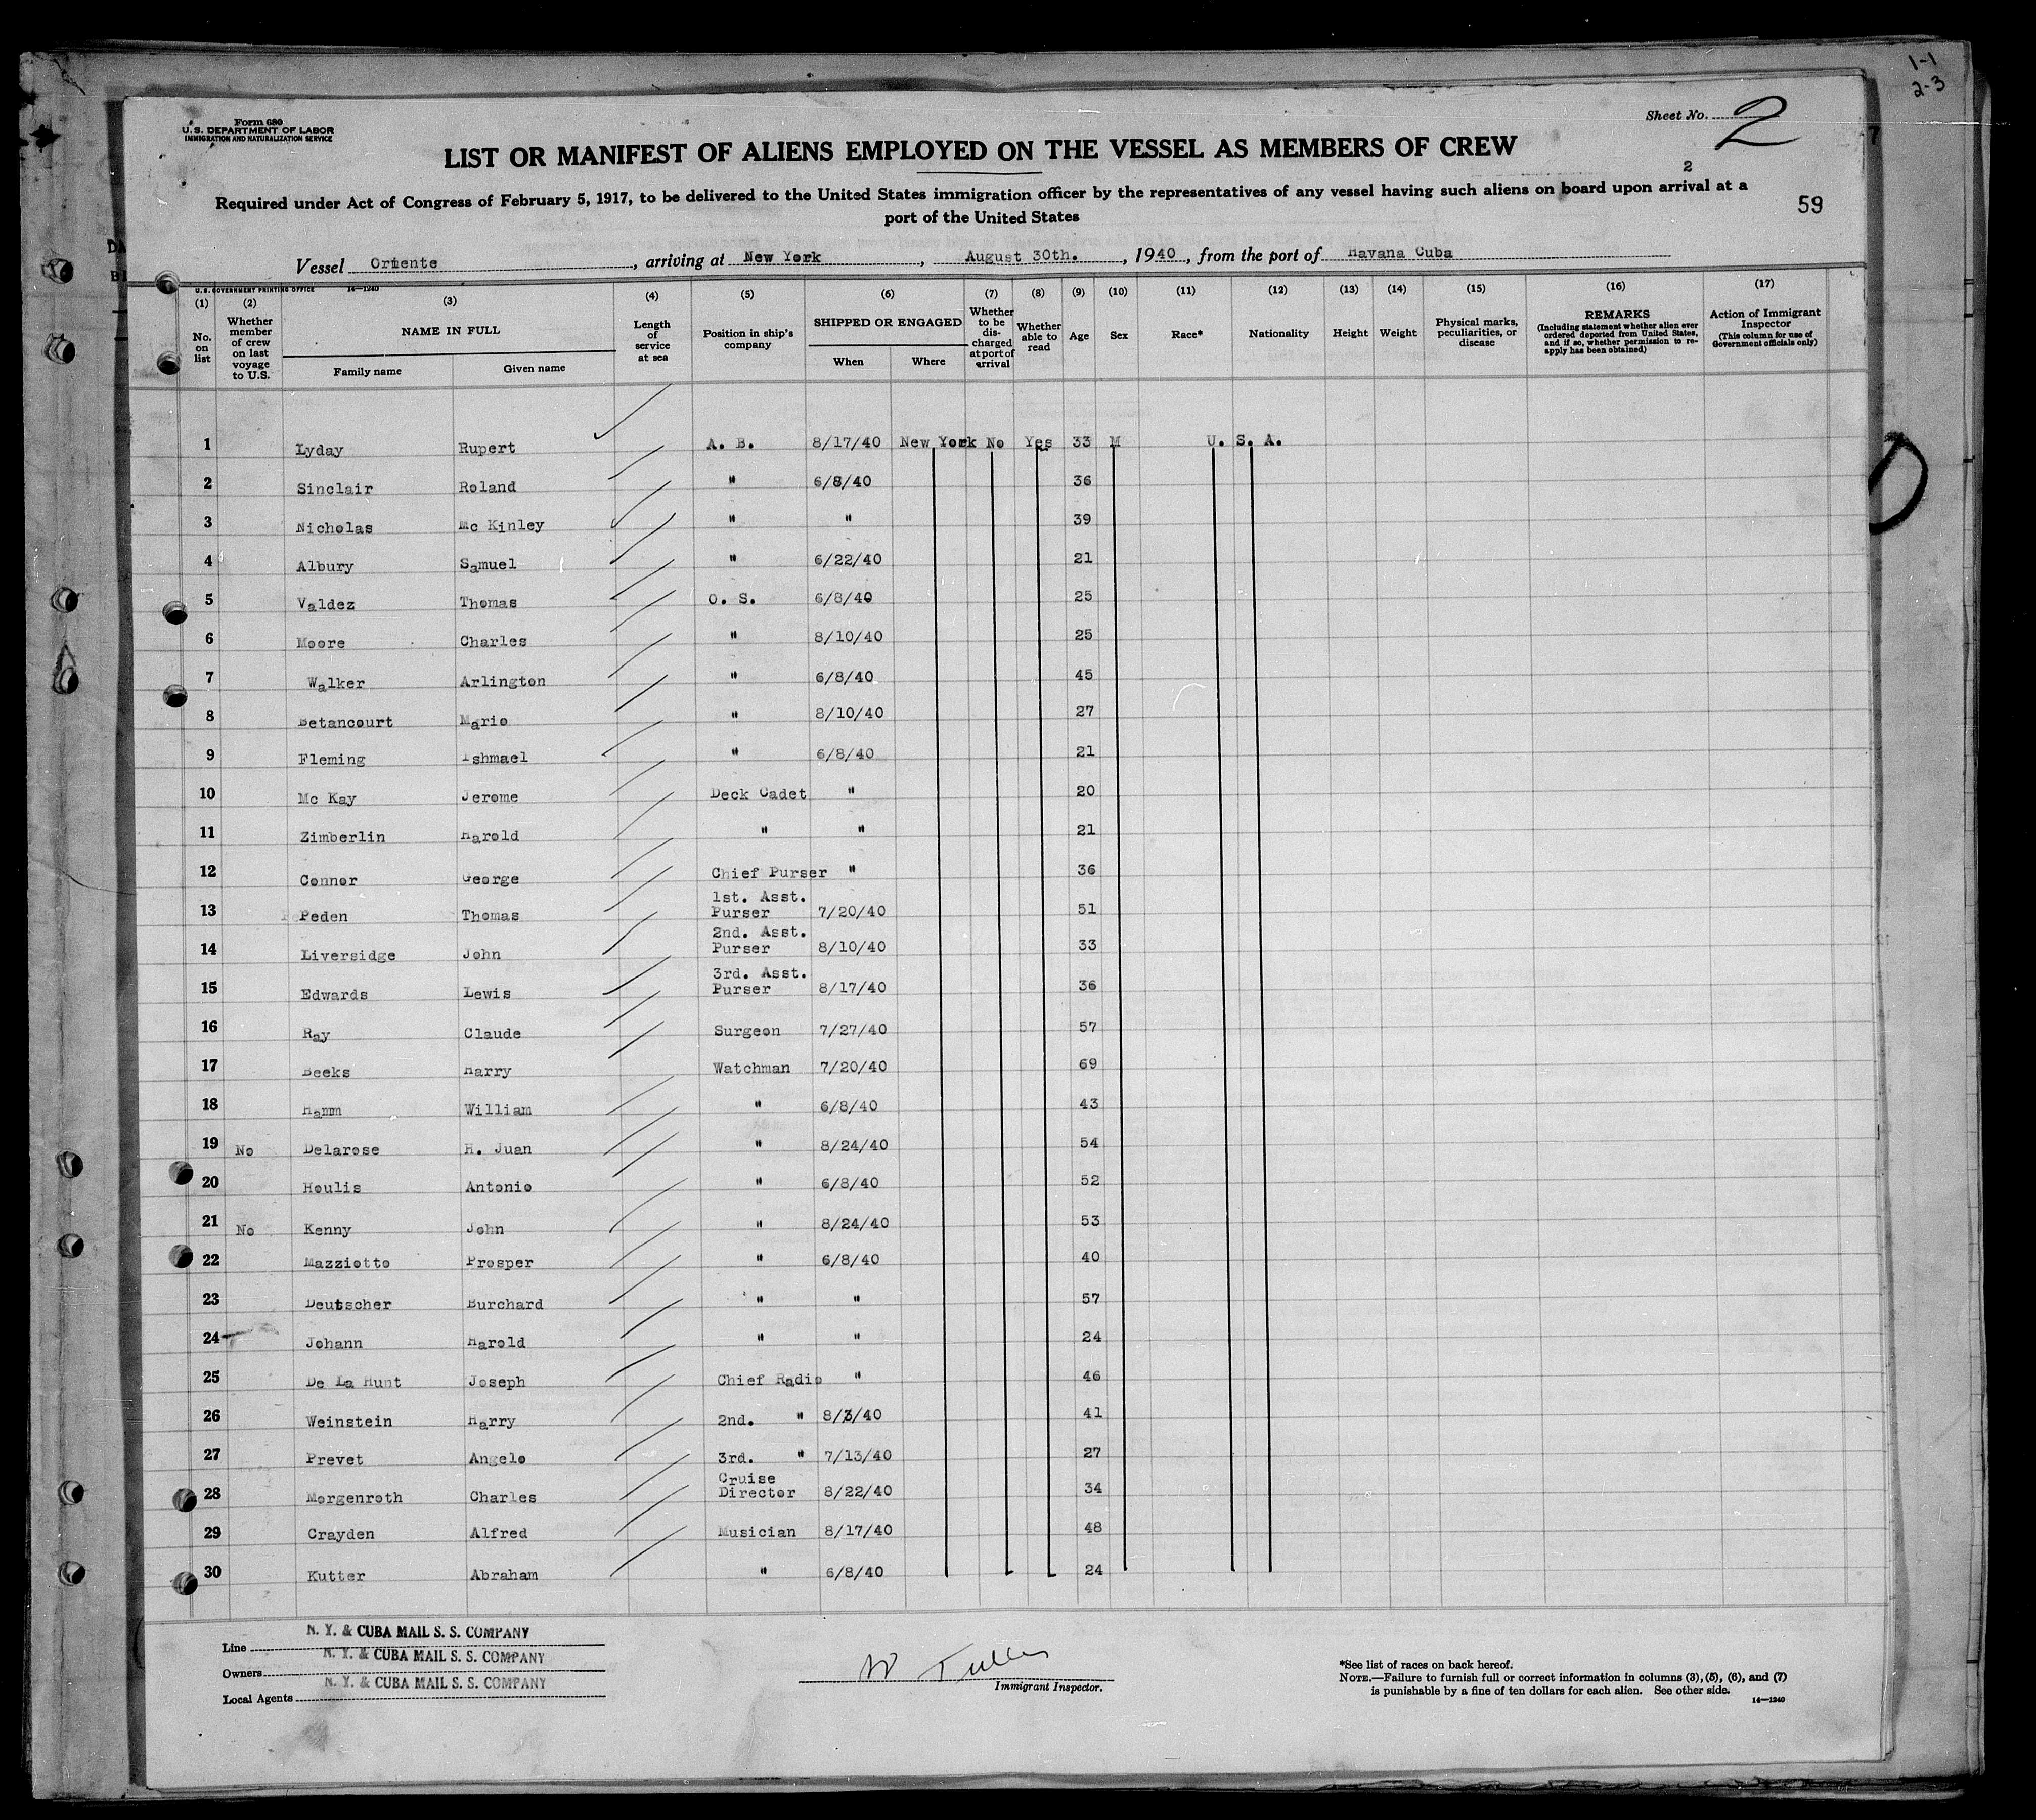 1-1
2-3
Form 680
U. S. DEPARTMENT OF LABOR
IMMIGRATION AND NATURALIZATION SERVICE
Sheet No. 2
LIST OR MANIFEST OF ALIENS EMPLOYED ON THE VESSEL AS MEMBERS OF CREW
2
Required under Act of Congress of February 5, 1917, to be delivered to the United States immigration officer by the representatives of any vessel having such aliens on board upon arrival at a
port of the United States
59
Vessel Oriente, arriving at New York, August 30th., 1940, from the port of Havana Cuba
U. S. GOVERNMENT PRINTING OFFICE 14—1240
(1) (2) (3) (4) (5) (6) (7) (8) (9) (10) (11) (12) (13) (14) (15) (16) (17)
No. on list
Whether member of crew on last voyage to U.S.
NAME IN FULL
Family name
Given name
Length of service at sea
Position in ship's company
SHIPPED OR ENGAGED
When
Where
Whether to be discharged at port of arrival
Whether able to read
Age
Sex
Race*
Nationality
Height
Weight
Physical marks, peculiarities, or disease
REMARKS
(Including statement whether alien ever ordered deported from United States, and if so, whether permission to reapply has been obtained)
Action of Immigrant Inspector
(This column for use of Government officials only)
1 Lyday Rupert A. B. 8/17/40 New York No Yes 33 M U. S. A.
2 Sinclair Roland " 6/8/40 36
3 Nicholas Mc Kinley " " 39
4 Albury Samuel " 6/22/40 21
5 Valdez Thomas O. S. 6/8/40 25
6 Moore Charles " 8/10/40 25
7 Walker Arlington " 6/8/40 45
8 Betancourt Mario " 8/10/40 27
9 Fleming Ishmael " 6/8/40 21
10 Mc Kay Jerome Deck Cadet " 20
11 Zimberlin Harold " " 21
12 Connor George Chief Purser " 36
13 Peden Thomas 1st. Asst. Purser 7/20/40 51
14 Liversidge John 2nd. Asst. Purser 8/10/40 33
15 Edwards Lewis 3rd. Asst. Purser 8/17/40 36
16 Ray Claude Surgeon 7/27/40 57
17 Beeks Harry Watchman 7/20/40 69
18 Hamm William " 6/8/40 43
19 No Delarose H. Juan " 8/24/40 54
20 Houlis Antonio " 6/8/40 52
21 No Kenny John " 8/24/40 53
22 Mazziotto Prosper " 6/8/40 40
23 Deutscher Burchard " " 57
24 Johann Harold " " 24
25 De La Hunt Joseph Chief Radio " 46
26 Weinstein Harry 2nd. " 8/3/40 41
27 Prevet Angelo 3rd. " 7/13/40 27
28 Morgenroth Charles Cruise Director 8/22/40 34
29 Crayden Alfred Musician 8/17/40 48
30 Kutter Abraham " 6/8/40 24
Line N. Y. & CUBA MAIL S. S. COMPANY
Owners N. Y. & CUBA MAIL S. S. COMPANY
Local Agents N. Y. & CUBA MAIL S. S. COMPANY
Immigrant Inspector.
*See list of races on back hereof.
NOTE.—Failure to furnish full or correct information in columns (3), (5), (6), and (7)
is punishable by a fine of ten dollars for each alien. See other side.
14—1240